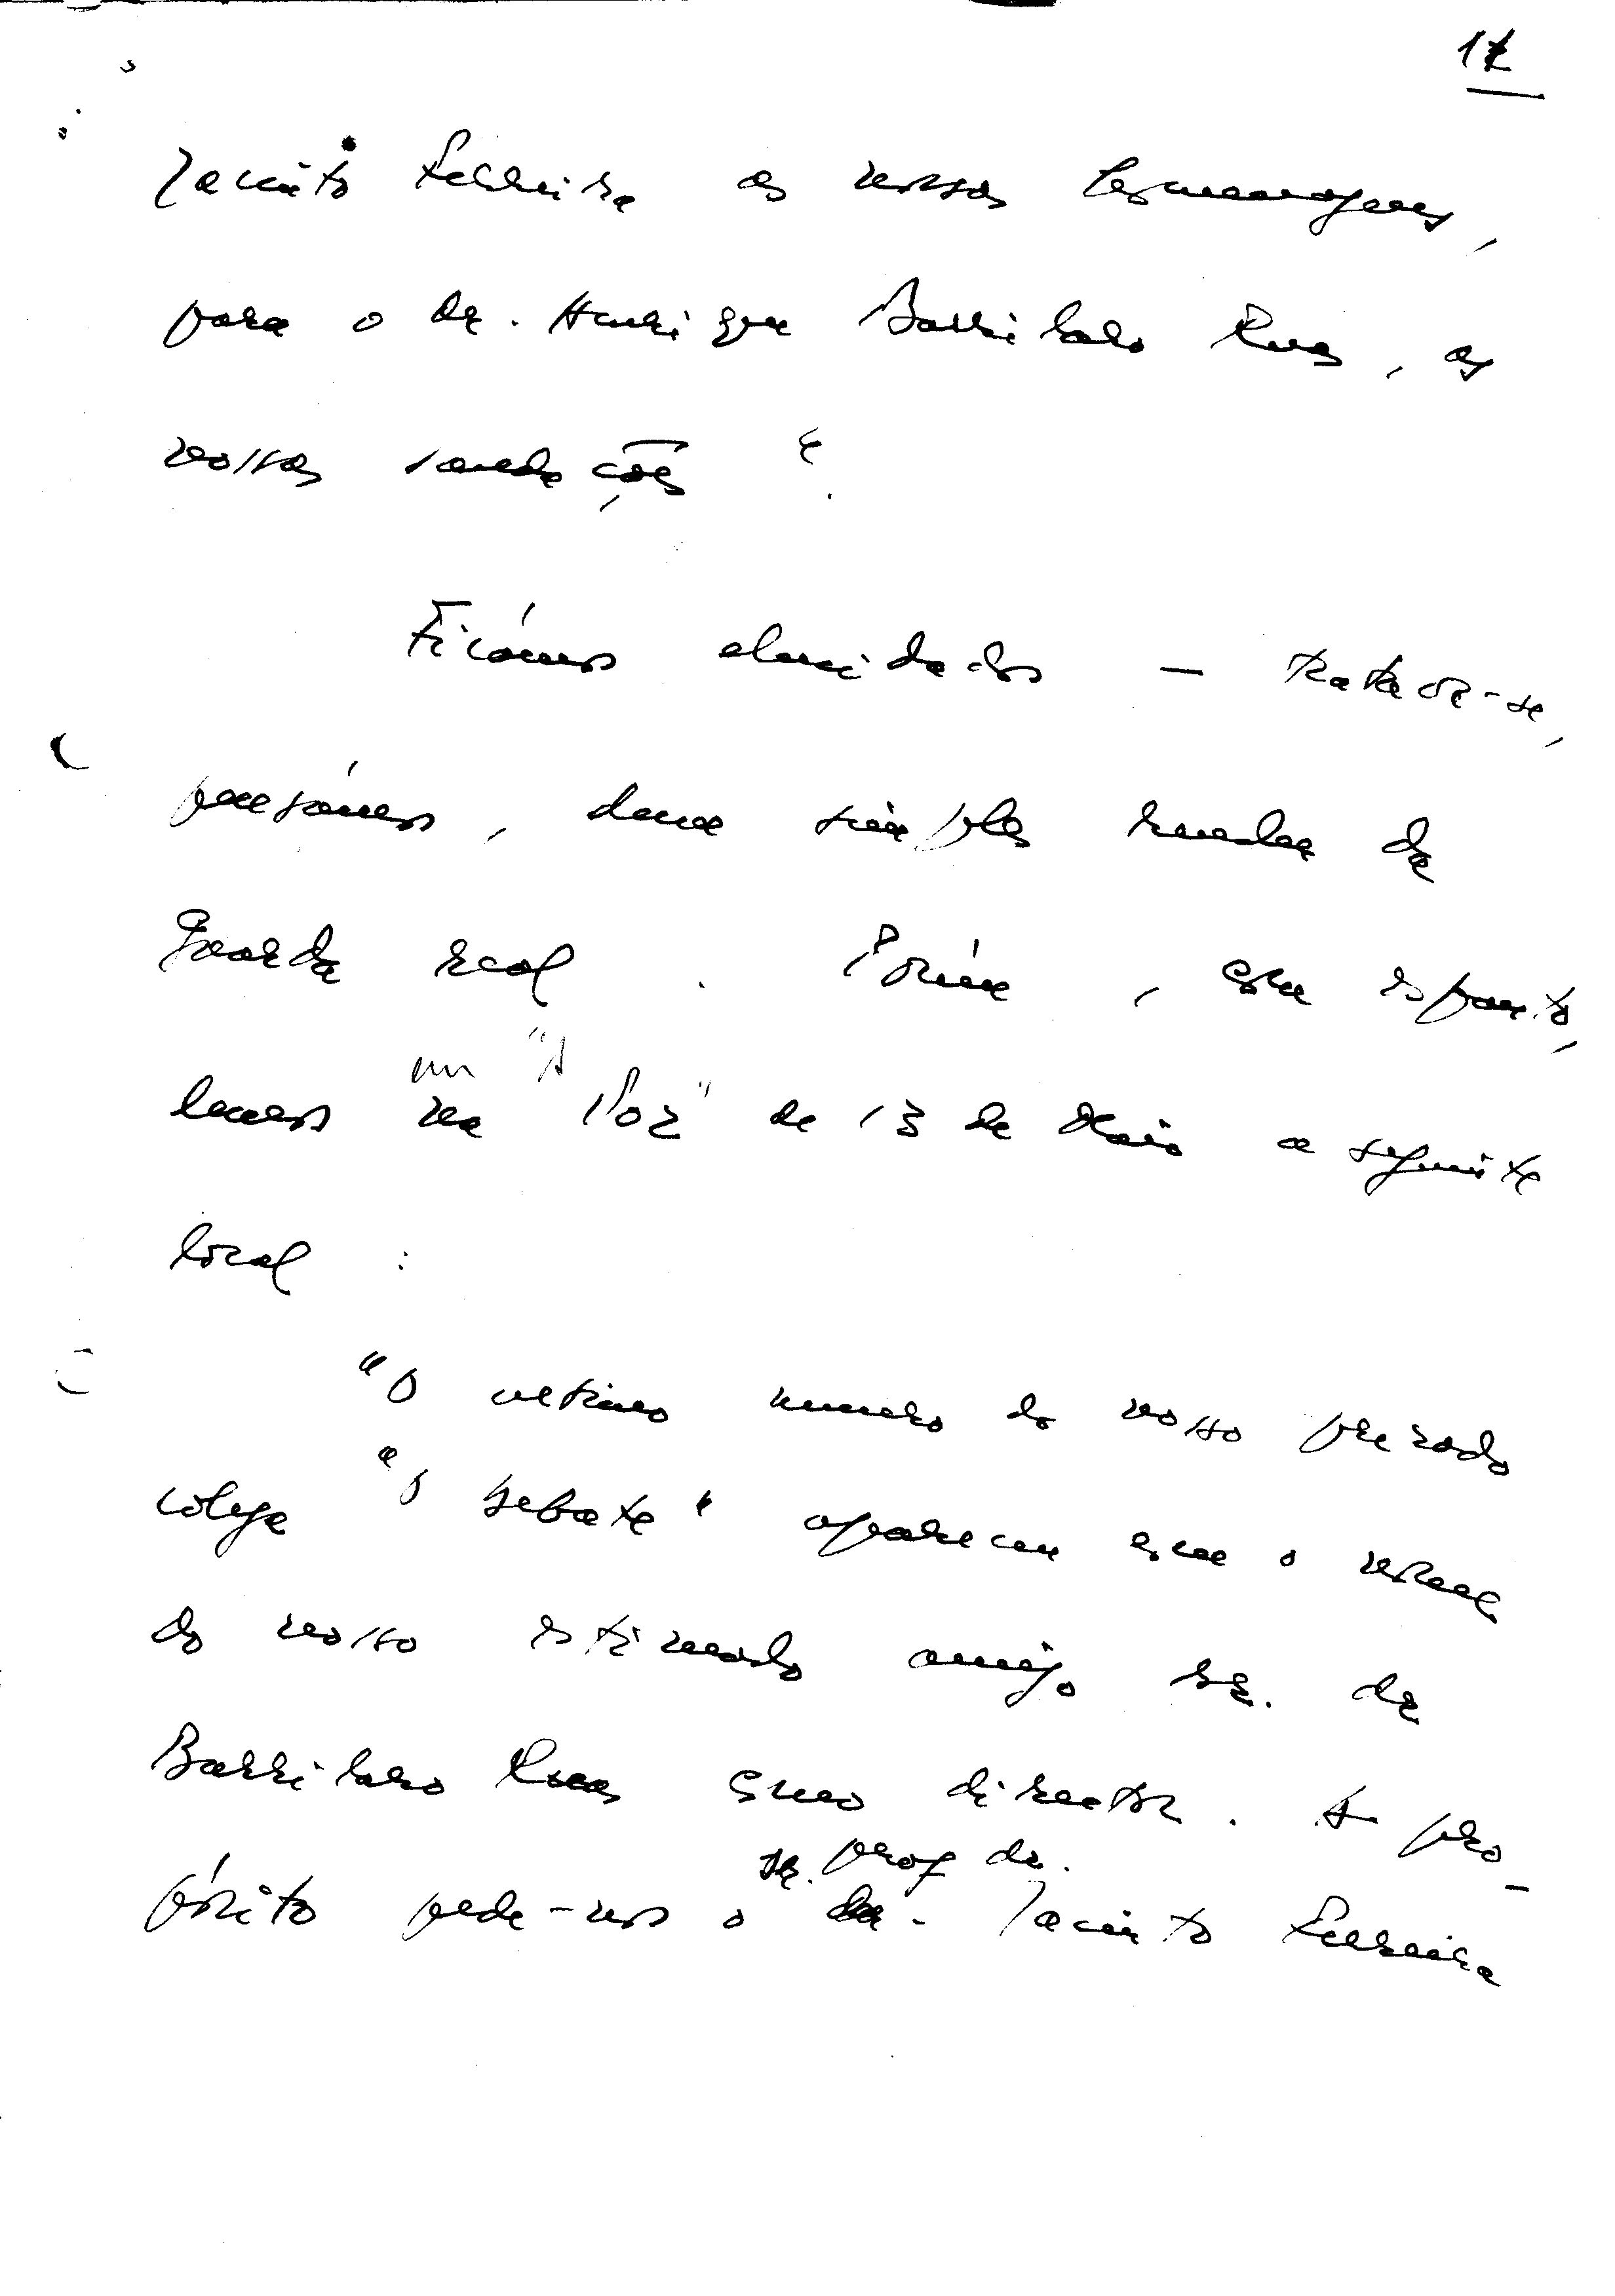 17
Jacinto Ferreira as nossas homenagens,
para o dr. Henrique Barrilaro Ruas, as
nossas saudações".
Ficámos elucidados — tratar-se,
pensámos, duma simples mudar da
Guarda real. Porém, com espanto,
lemos em "A Voz" de 13 de Maio a seguinte
local:
"O ultimo numero do nosso prezado
colega "O Debate" apareceu com o nome
do nosso estimado amigo sr. dr
Barrilaro Ruas como director. A pro-
pósito pede-nos o sr. prof dr. Jacinto Ferreira